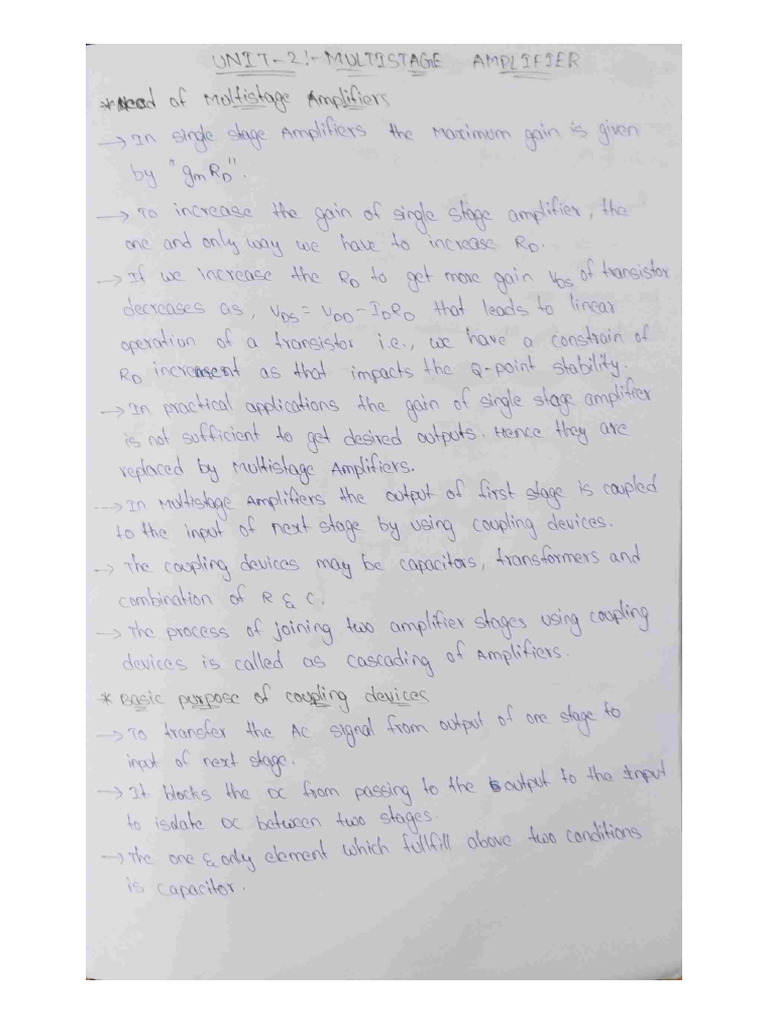 UNIT-2:- MULTISTAGE AMPLIFIER
* Need of Multistage Amplifiers
→ In single stage Amplifiers the Maximum gain is given
by "gmRD".
→ To increase the gain of single stage amplifier, the
one and only way we have to increase RD.
→ If we increase the RD to get more gain VDS of transistor
decreases as, VDS = VDD - IDRD that leads to linear
operation of a transistor i.e., we have a constrain of
RD increment as that impacts the Q-point stability.
→ In practical applications the gain of single stage amplifier
is not sufficient to get desired outputs. Hence they are
replaced by Multistage Amplifiers.
→ In Multistage Amplifiers the output of first stage is coupled
to the input of next stage by using coupling devices.
→ The coupling devices may be capacitors, transformers and
combination of R & C.
→ The process of joining two amplifier stages using coupling
devices is called as cascading of Amplifiers.
* Basic purpose of coupling devices
→ To transfer the AC signal from output of one stage to
input of next stage.
→ It blocks the DC from passing to the output to the Input
to isolate DC between two stages.
→ The one & only element which fullfill above two conditions
is capacitor.